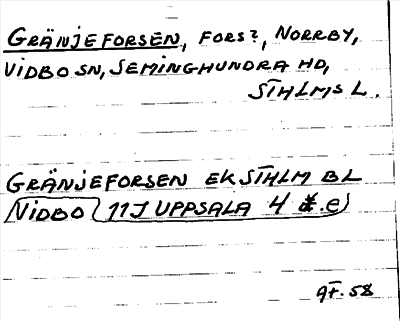 GRÄNJEFORSEN, FORS?, NORRBY,
VIDBO SN, SEMINGHUNDRA HD,
STHLMS L.
GRÄNJEFORSEN EK STHLM BL
VIDBO 11J UPPSALA 4 .e
58